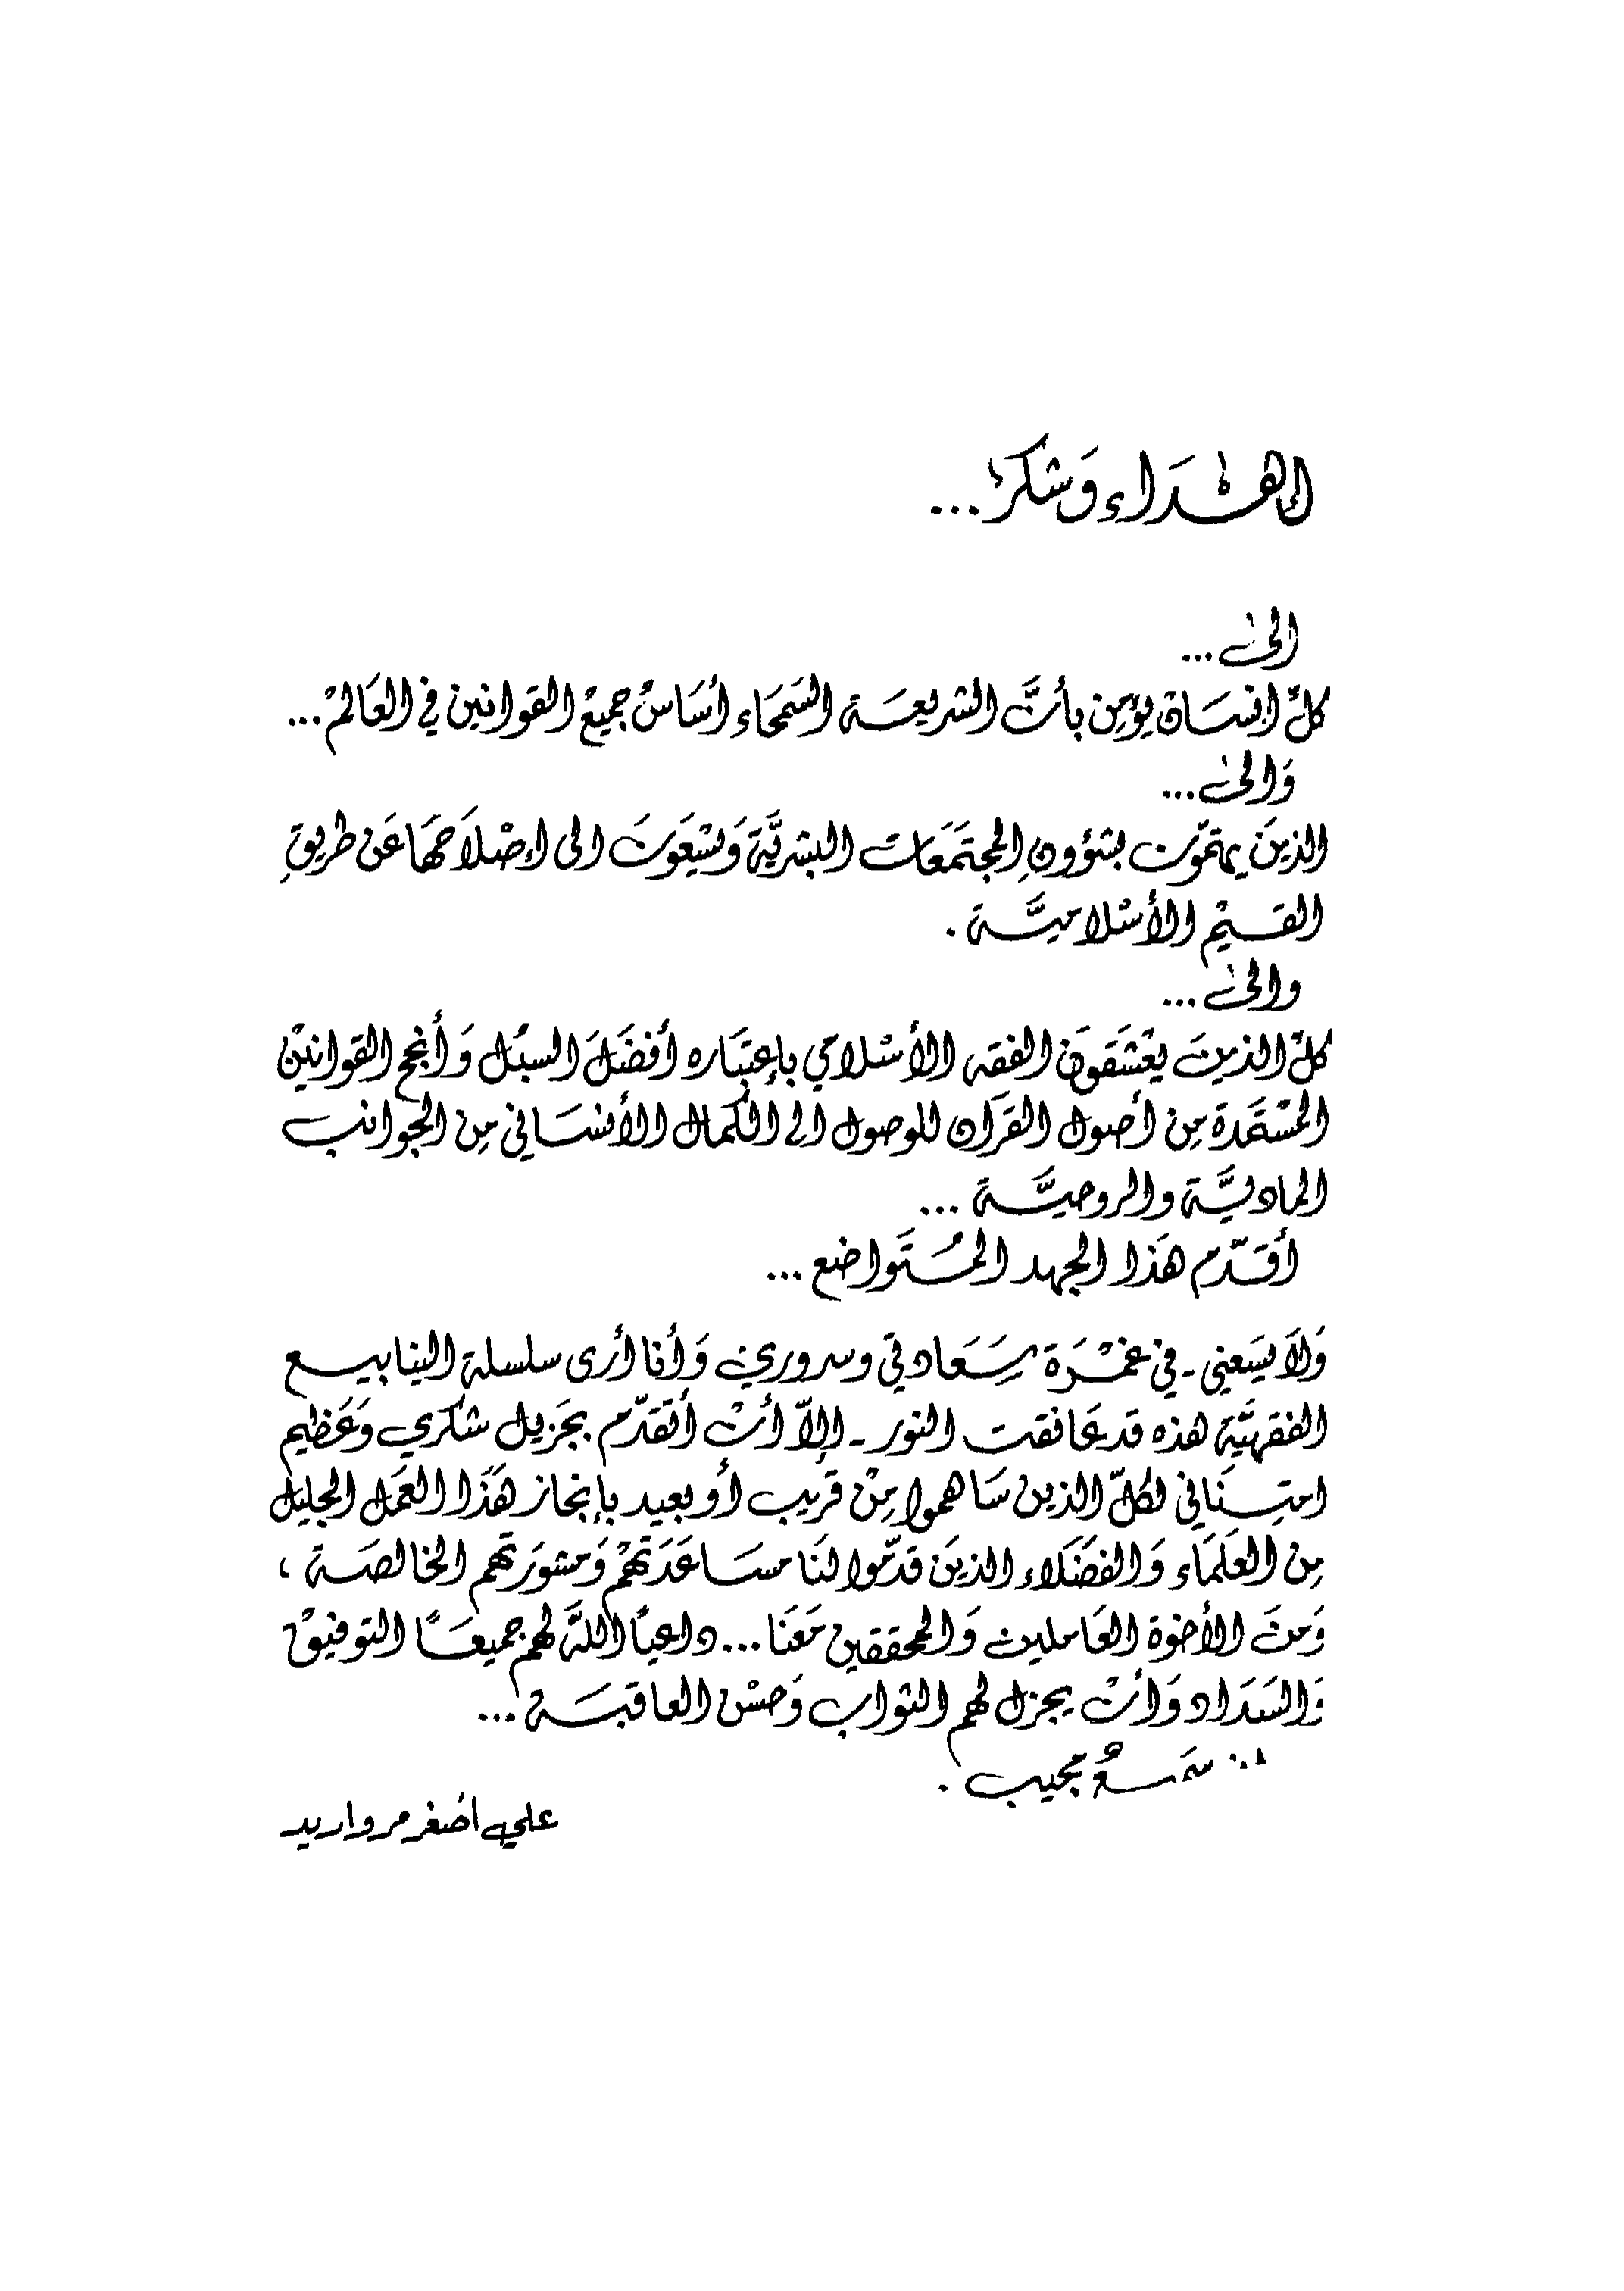 إهداء وَشكر...
الىٰ...
كلّ انسَان يؤمِن بأنَّ الشريعَة السَمحَاء أسَاسُ جميعْ القوانين في العَالمْ...
وَالىٰ...
الذينَ يهتمّون بشؤونِ المجتَمَعَات البشريَّة وَيسْعَونَ الى إصْلاَحهَا عَن طريقِ
القيمْ الأسْلاميَّة .
والىٰ...
كلّ الذينَ يعْشَقونَ الفقه الأسْلامي بإعتبَاره أفضَلَ السبُل وَأنجح القوانيْن
المسْتمَدة مِن أصول القرَآن للوصول الى الكمال الأنسَاني مِن الجوانب
الماديَّة والروحيَّة ...
أقدّم هَذا الجهد المُتَواضع ...
وَلاَ يسَعني - في غمْرَة سَعَادتي وسروري وَأنا أرى سلسلة الينابيع
الفقهيَّة هذه قد عَانقت النور - إلاّ أنْ أتقدّم بجَزيل شكري وَعَظيم
امتِنَاني لكلّ الذين سَاهموا مِنْ قَريب أو بعيد بإنجاز هَذا العَمل الجليل
مِن العلَمَاء وَالفضَلاء الذينَ قدّموا لنَا مسَاعَدَتهمْ وَمشورَتهم الخالصَة ،
وَمنَ الأخوة العَاملين وَالمحققين مَعَنا... داعياً اللَّه لهم جميعَاً التوفيقْ
وَالسَدَاد وَأنْ يجزل لهم الثواب وَحسْن العاقبَة ...
سَميعٌ مجّيب .
علي اصَغر مرواريد